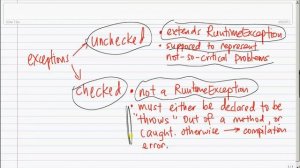 unchecked
• extends RuntimeException
• supposed to represent
not-so-critical problems
exceptions
checked
• not a RuntimeException
• must either be declared to be
"throws" out of a method, or
caught. otherwise → compilation
error.